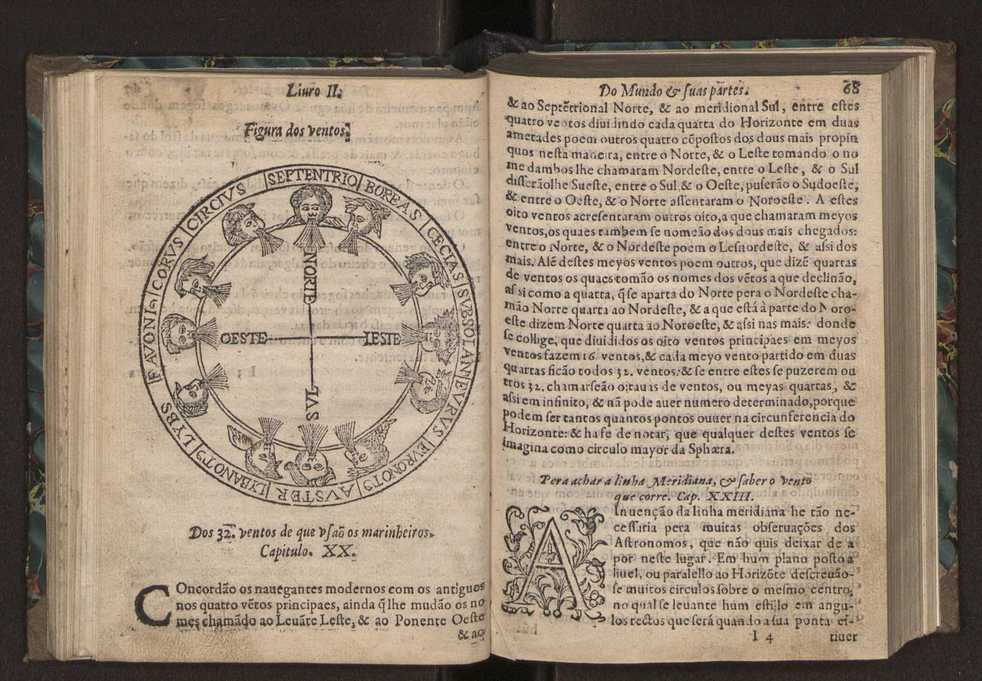 Liuro II.
Figura dos ventos.
SEPTENTRIO
BOREAS
CECIAS
SVBSOLAN9
EVRVS
EVRONOT9
AVSTER
LYBANOT9
LYBS
FAVONI9
CORVS
CIRCIVS
NORTE
LESTE
SVL
OESTE
Dos 32. ventos de que vsaõ os marinheiros.
Capitulo. XX.
COncordão os nauegantes modernos com os antiguos
nos quatro vẽtos principaes, ainda q̃ lhe mudão os no
mes chamãdo ao Leuãte Leste, & ao Ponente Oeste
& ao
Do Mundo & suas partes. 68
& ao Septẽtrional Norte, & ao meridional Sul, entre estes
quatro ventos diuidindo cada quarta do Horizonte em duas
ametades poem outros quatro cõpostos dos dous mais propin
quos nesta maneira, entre o Norte, & o Leste tomando o no
me dambos lhe chamaram Nordeste, entre o Leste, & o Sul
disserãolhe Sueste, entre o Sul & o Oeste, puserão o Sudoeste,
& entre o Oeste, & o Norte assentaram o Noroeste. A estes
oito ventos acresentaram outros oito, a que chamaram meyos
ventos, os quaes tambem se nomeão dos dous mais chegados:
entre o Norte, & o Nordeste poem o Lesnordeste, & assi dos
mais. Alẽ destes meyos ventos poem outros, que dizẽ quartas
de ventos os quaes tomão os nomes dos vẽtos a que declinão,
assi como a quarta, q̃ se aparta do Norte pera o Nordeste cha-
mão Norte quarta ao Nordeste, & a que está à parte do Noro-
este dizem Norte quarta ao Noroeste, & assi nas mais: donde
se collige, que diuididos os oito ventos principaes em meyos
ventos fazem 16 ventos, & cada meyo vento partido em duas
quartas ficão todos 32. ventos: & se entre estes se puzerem ou
tros 32. chamarseão oitauas de ventos, ou meyas quartas, &
assi em infinito, & nã pode auer numero determinado, porque
podem ser tantos quantos pontos ouuer na circunferencia do
Horizonte: & ha se de notar, que qualquer destes ventos se
imagina como circulo mayor da Sphæra.
Pera achar a linha Meridiana, & saber o vento
que corre. Cap. XXIII.
A Inuenção da linha meridiana he tão ne-
cessaria pera muitas obseruações dos
Astronomos, que não quis deixar de a
por neste lugar. Em hum plano posto a
liuel, ou parallelo ao Horizõte descreuão-
se muitos circulos sobre o mesmo centro,
no qual se leuante hum estilo em angu-
los rectos que será quando a sua ponta es-
I 4 tiuer